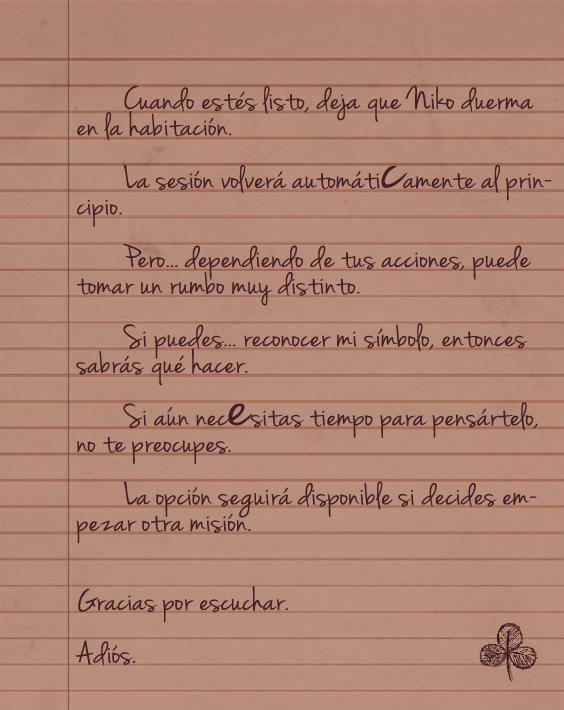 Cuando estés listo, deja que Niko duerma
en la habitación.
La sesión volverá automátiCamente al prin-
cipio.
Pero... dependiendo de tus acciones, puede
tomar un rumbo muy distinto.
Si puedes... reconocer mi símbolo, entonces
sabrás qué hacer.
Si aún necesitas tiempo para pensártelo,
no te preocupes.
La opción seguirá disponible si decides em-
pezar otra misión.
Gracias por escuchar.
Adiós.